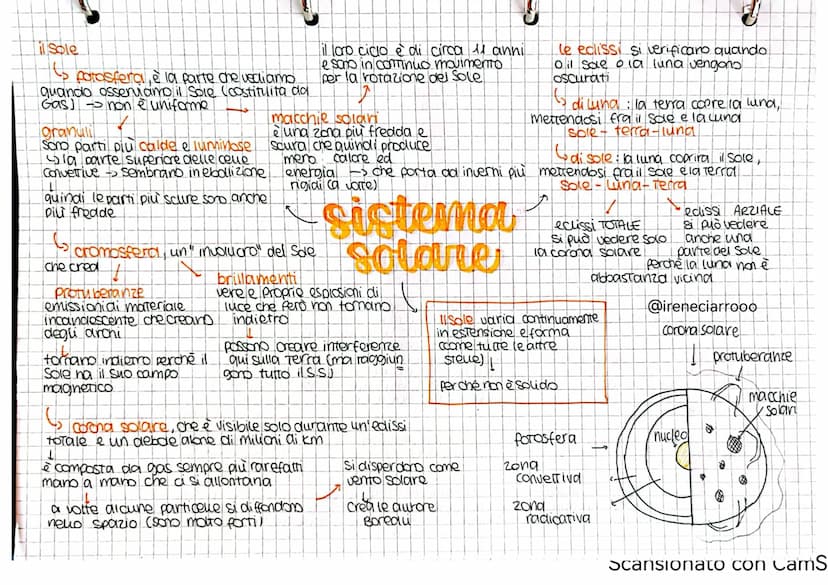 il sole
↳ fotosfera, è la parte che vediamo
quando osserviamo il Sole (costituita da
Gas) → non è uniforme
granuli
sono parti più calde e luminose
↳ la parte superiore delle celle
convettive → sembrano in ebollizione
quindi le parti più scure sono anche
più fredde
macchie solari
è una zona più fredda e
scura che quindi produce
meno calore ed
energia → che porta ad inverni più
rigidi (a volte)
il loro ciclo è di circa 11 anni
e sono in continuo movimento
per la rotazione del Sole
le eclissi si verificano quando
o il Sole o la luna vengono
oscurati
↳ di luna : la terra copre la luna,
mettendosi fra il Sole e la luna
sole - terra - luna
↳ di sole : la luna coprirà il sole,
mettendosi fra il sole e la terra
sole - luna - terra
eclissi TOTALE
si può vedere solo
la corona solare
eclissi ARZIALE
si può vedere
anche una
parte del sole
perché la luna non è
abbastanza vicina
sistema
solare
↳ cromosfera, un "involucro" del Sole
che crea
protuberanze
emissioni di materiale
incandescente che creano
degli archi
tornano indietro perché il
Sole ha il suo campo
magnetico
brillamenti
vere e proprie esplosioni di
luce che però non tornano
indietro
possono creare interferenze
qui sulla Terra (ma raggiun
gono tutto il S.S)
Il Sole varia continuamente
in estensione e forma
(come tutte le altre
stelle)
perché non è solido
↳ corona solare, che è visibile solo durante un'eclissi
totale e un debole alone di milioni di km
è composta da gas sempre più rarefatti
mano a mano che ci si allontana
a volte alcune particelle si diffondono
nello spazio (sono molto forti)
si disperdono come
vento solare
crea le aurore
boreali
@ireneciarrooo
corona solare
protuberanze
macchie
solari
nucleo
fotosfera
zona
convettiva
zona
radioattiva
Scansionato con CamS